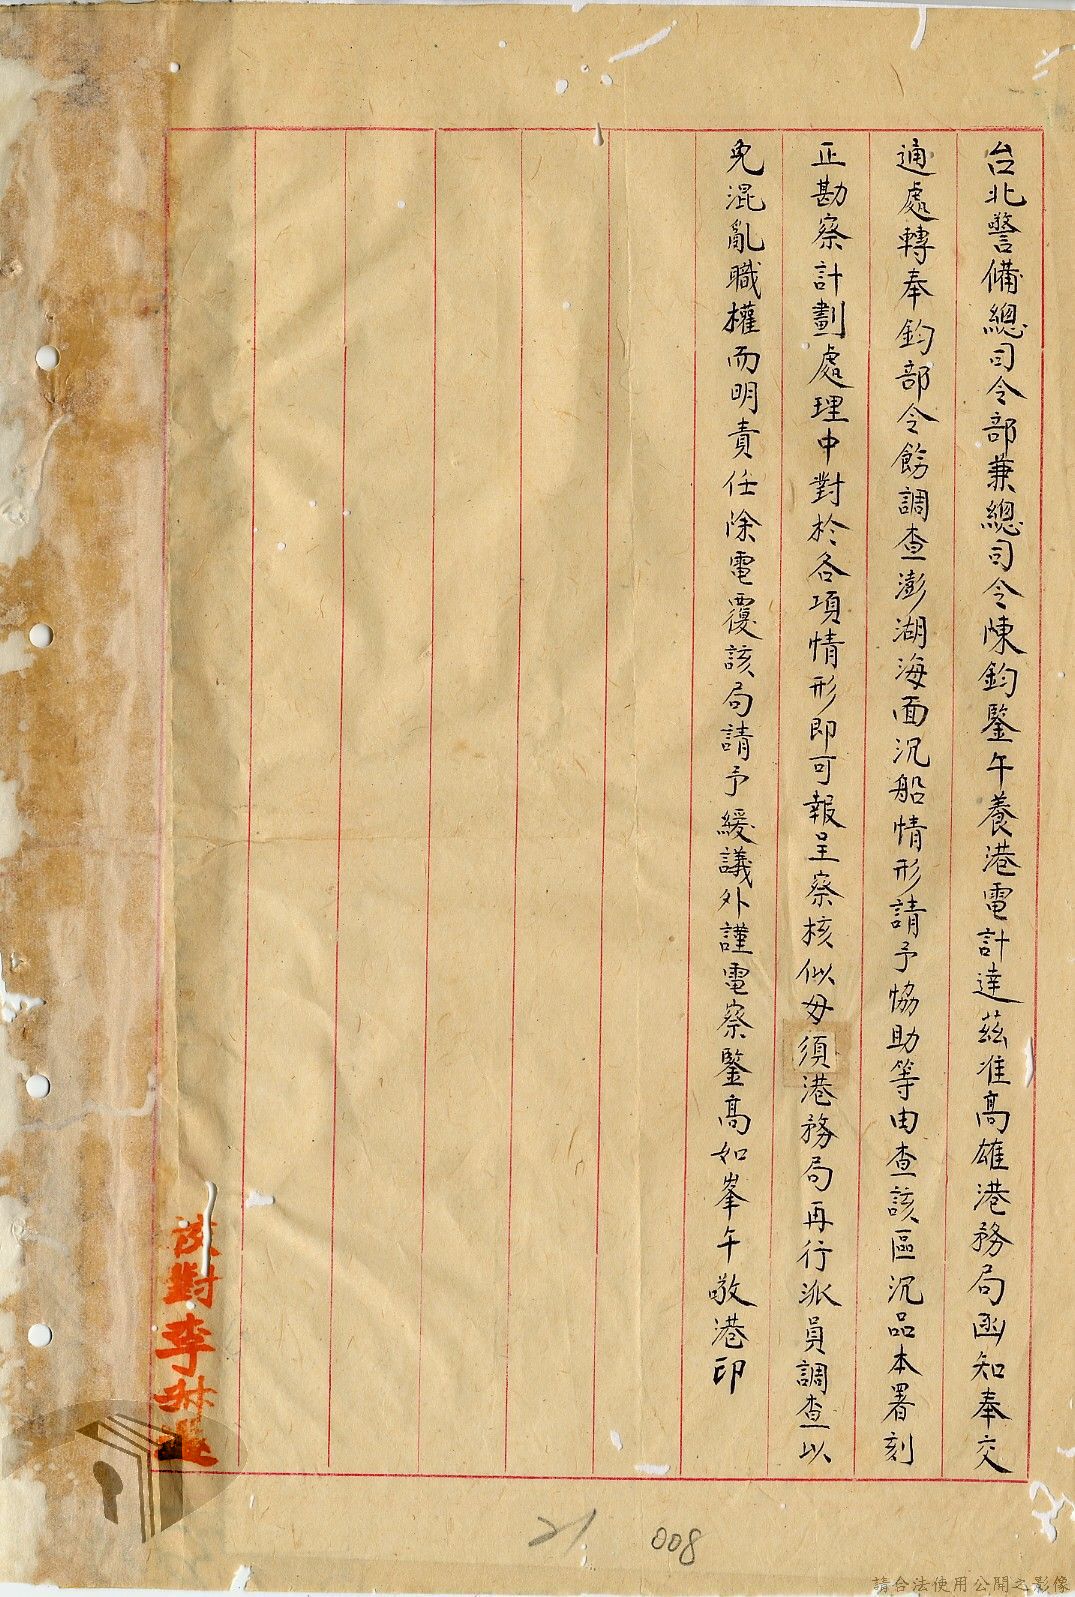 台北警備總司令部兼總司令陳鈞鑒午養港電計達茲准高雄港務局函知奉交
通處轉奉鈞部令飭調查澎湖海面沉船情形請予協助等由查該區沉品本署刻
正勘察計劃處理中對於各項情形即可報呈察核似毋須港務局再行派員調查以
免混亂職權而明責任除電覆該局請予緩議外謹電察鑒高如峯午敬港印
校對李
21 008
請合法使用公開之影像